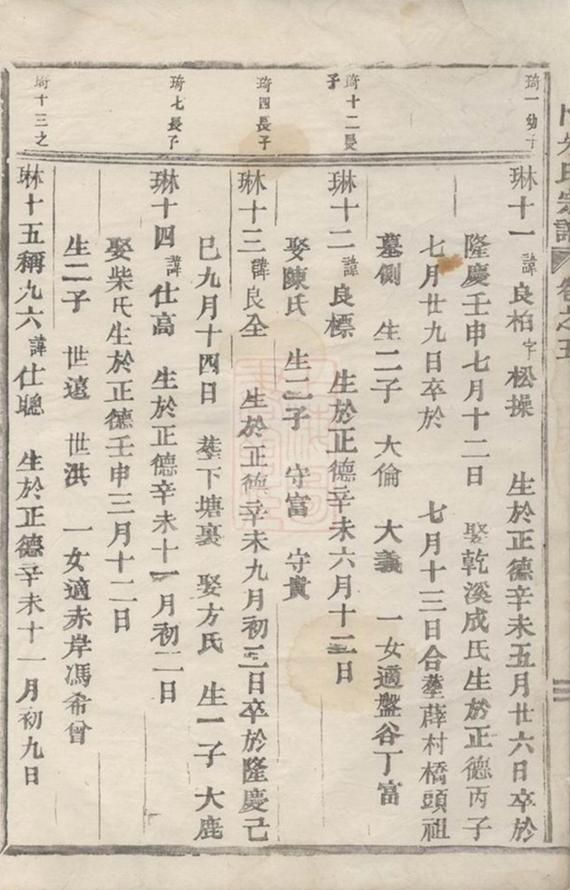 朱氏宗譜 卷之五
琦一幼子
琳十一諱良柏字松操 生於正德辛未五月廿六日卒於
隆慶壬申七月十二日 娶乾溪成氏生於正德丙子
七月廿九日卒於 七月十三日合塟薛村橋頭祖
墓側 生二子 大倫 大義 一女適盤谷丁富
琦十二長子
琳十二諱良標 生於正德辛未六月十二日
娶陳氏 生二子 守富 守貴
琦四長子
琳十三諱良全 生於正德辛未九月初三日卒於隆慶己
巳九月十四日 塟下塘裏 娶方氏 生一子 大鹿
琦七長子
琳十四諱仕高 生於正德辛未十一月初二日
娶柴氏生於正德壬申三月十二日
生二子 世遠 世洪 一女適赤岸馮希曾
琦十三之
琳十五稱九六諱仕聰 生於正德辛未十一月初九日